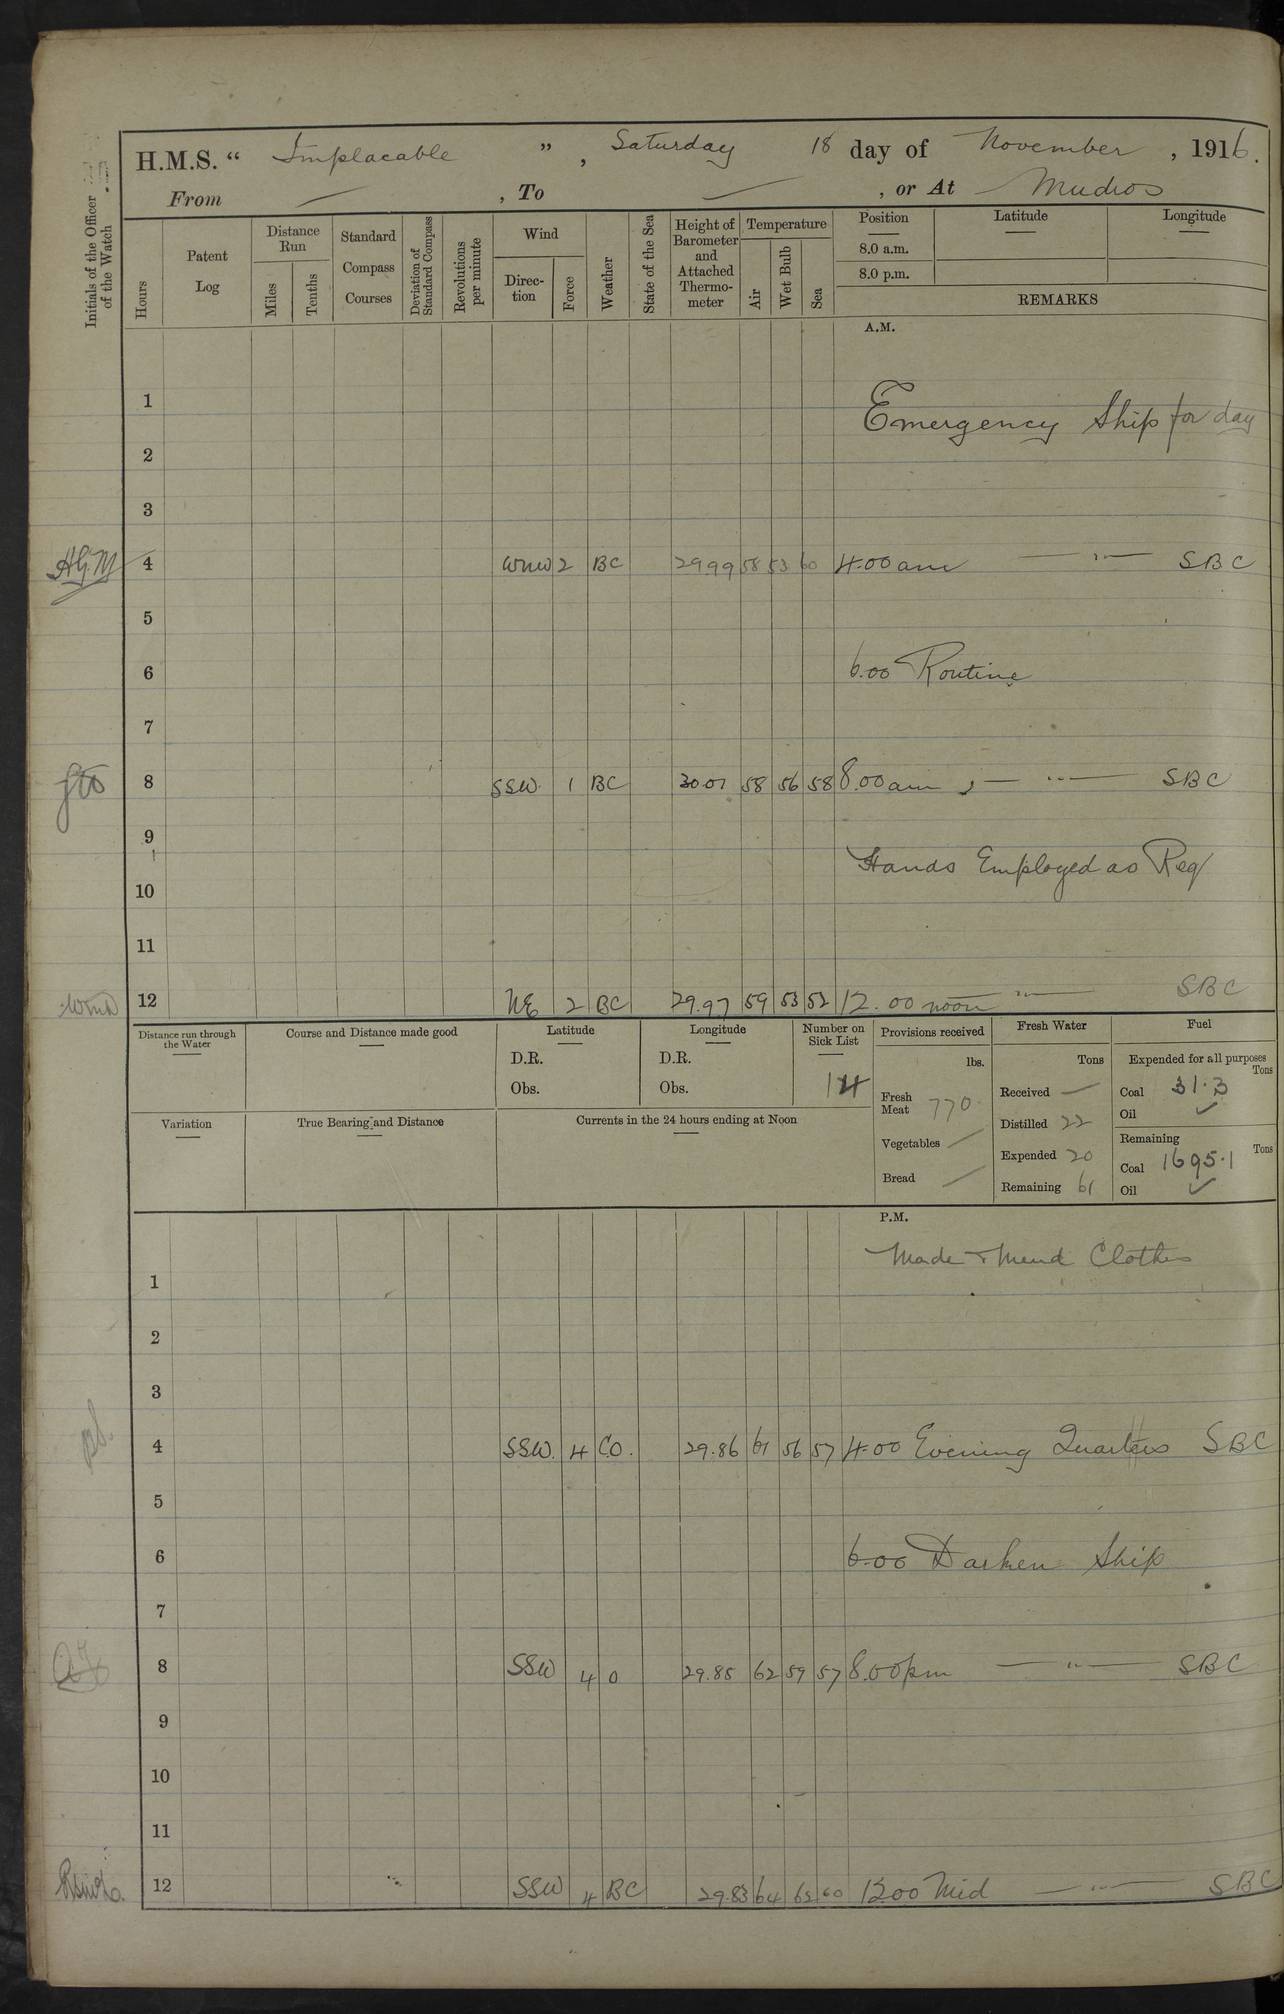 H.M.S. “ Implacable ” , Saturday 18 day of November , 1916.
From — , To — , or At Mudros
Initials of the Officer of the Watch
Hours
Patent Log
Distance Run
Miles
Tenths
Standard Compass Courses
Deviation of Standard Compass
Revolutions per minute
Wind
Direction
Force
Weather
State of the Sea
Height of Barometer and Attached Thermometer
Temperature
Air
Wet Bulb
Sea
Position
Latitude
Longitude
8.0 a.m.
8.0 p.m.
REMARKS
A.M.
1
Emergency Ship for day
2
3
4 WNW 2 BC 29.99 58 53 60 4.00 am — " — SBC
5
6 6.00 Routine
7
8 SSW. 1 BC 30.01 58 56 58 8.00 am , — " — SBC
9
Hands Employed as Req
10
11
12 NE 2 BC 29.97 59 53 52 12.00 noon — " — SBC
Distance run through the Water
Course and Distance made good
Latitude
D.R.
Obs.
Longitude
D.R.
Obs.
Number on Sick List
14
Provisions received
lbs.
Fresh Meat 770.
Vegetables —
Bread —
Fresh Water
Tons
Received —
Distilled 22
Expended 20
Remaining 61
Fuel
Expended for all purposes
Tons
Coal 31.3
Oil ✓
Remaining
Tons
Coal 1695.1
Oil ✓
Variation
True Bearing and Distance
Currents in the 24 hours ending at Noon
P.M.
Made & Mend Clothes
1
2
3
4 SSW. 4 C.O. 29.86 61 56 57 4.00 Evening Quarters SBC
5
6 6.00 Darken Ship
7
8 SSW 4 O 29.85 62 59 57 8.00 pm — " — SBC
9
10
11
12 SSW 4 BC 29.83 64 62 60 12.00 Mid — " — SBC